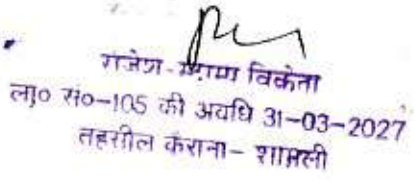 राजेश-स्टाम्प विक्रेता
ला० सं०-105 की अवधि 31-03-2027
तहसील कैराना-शामली